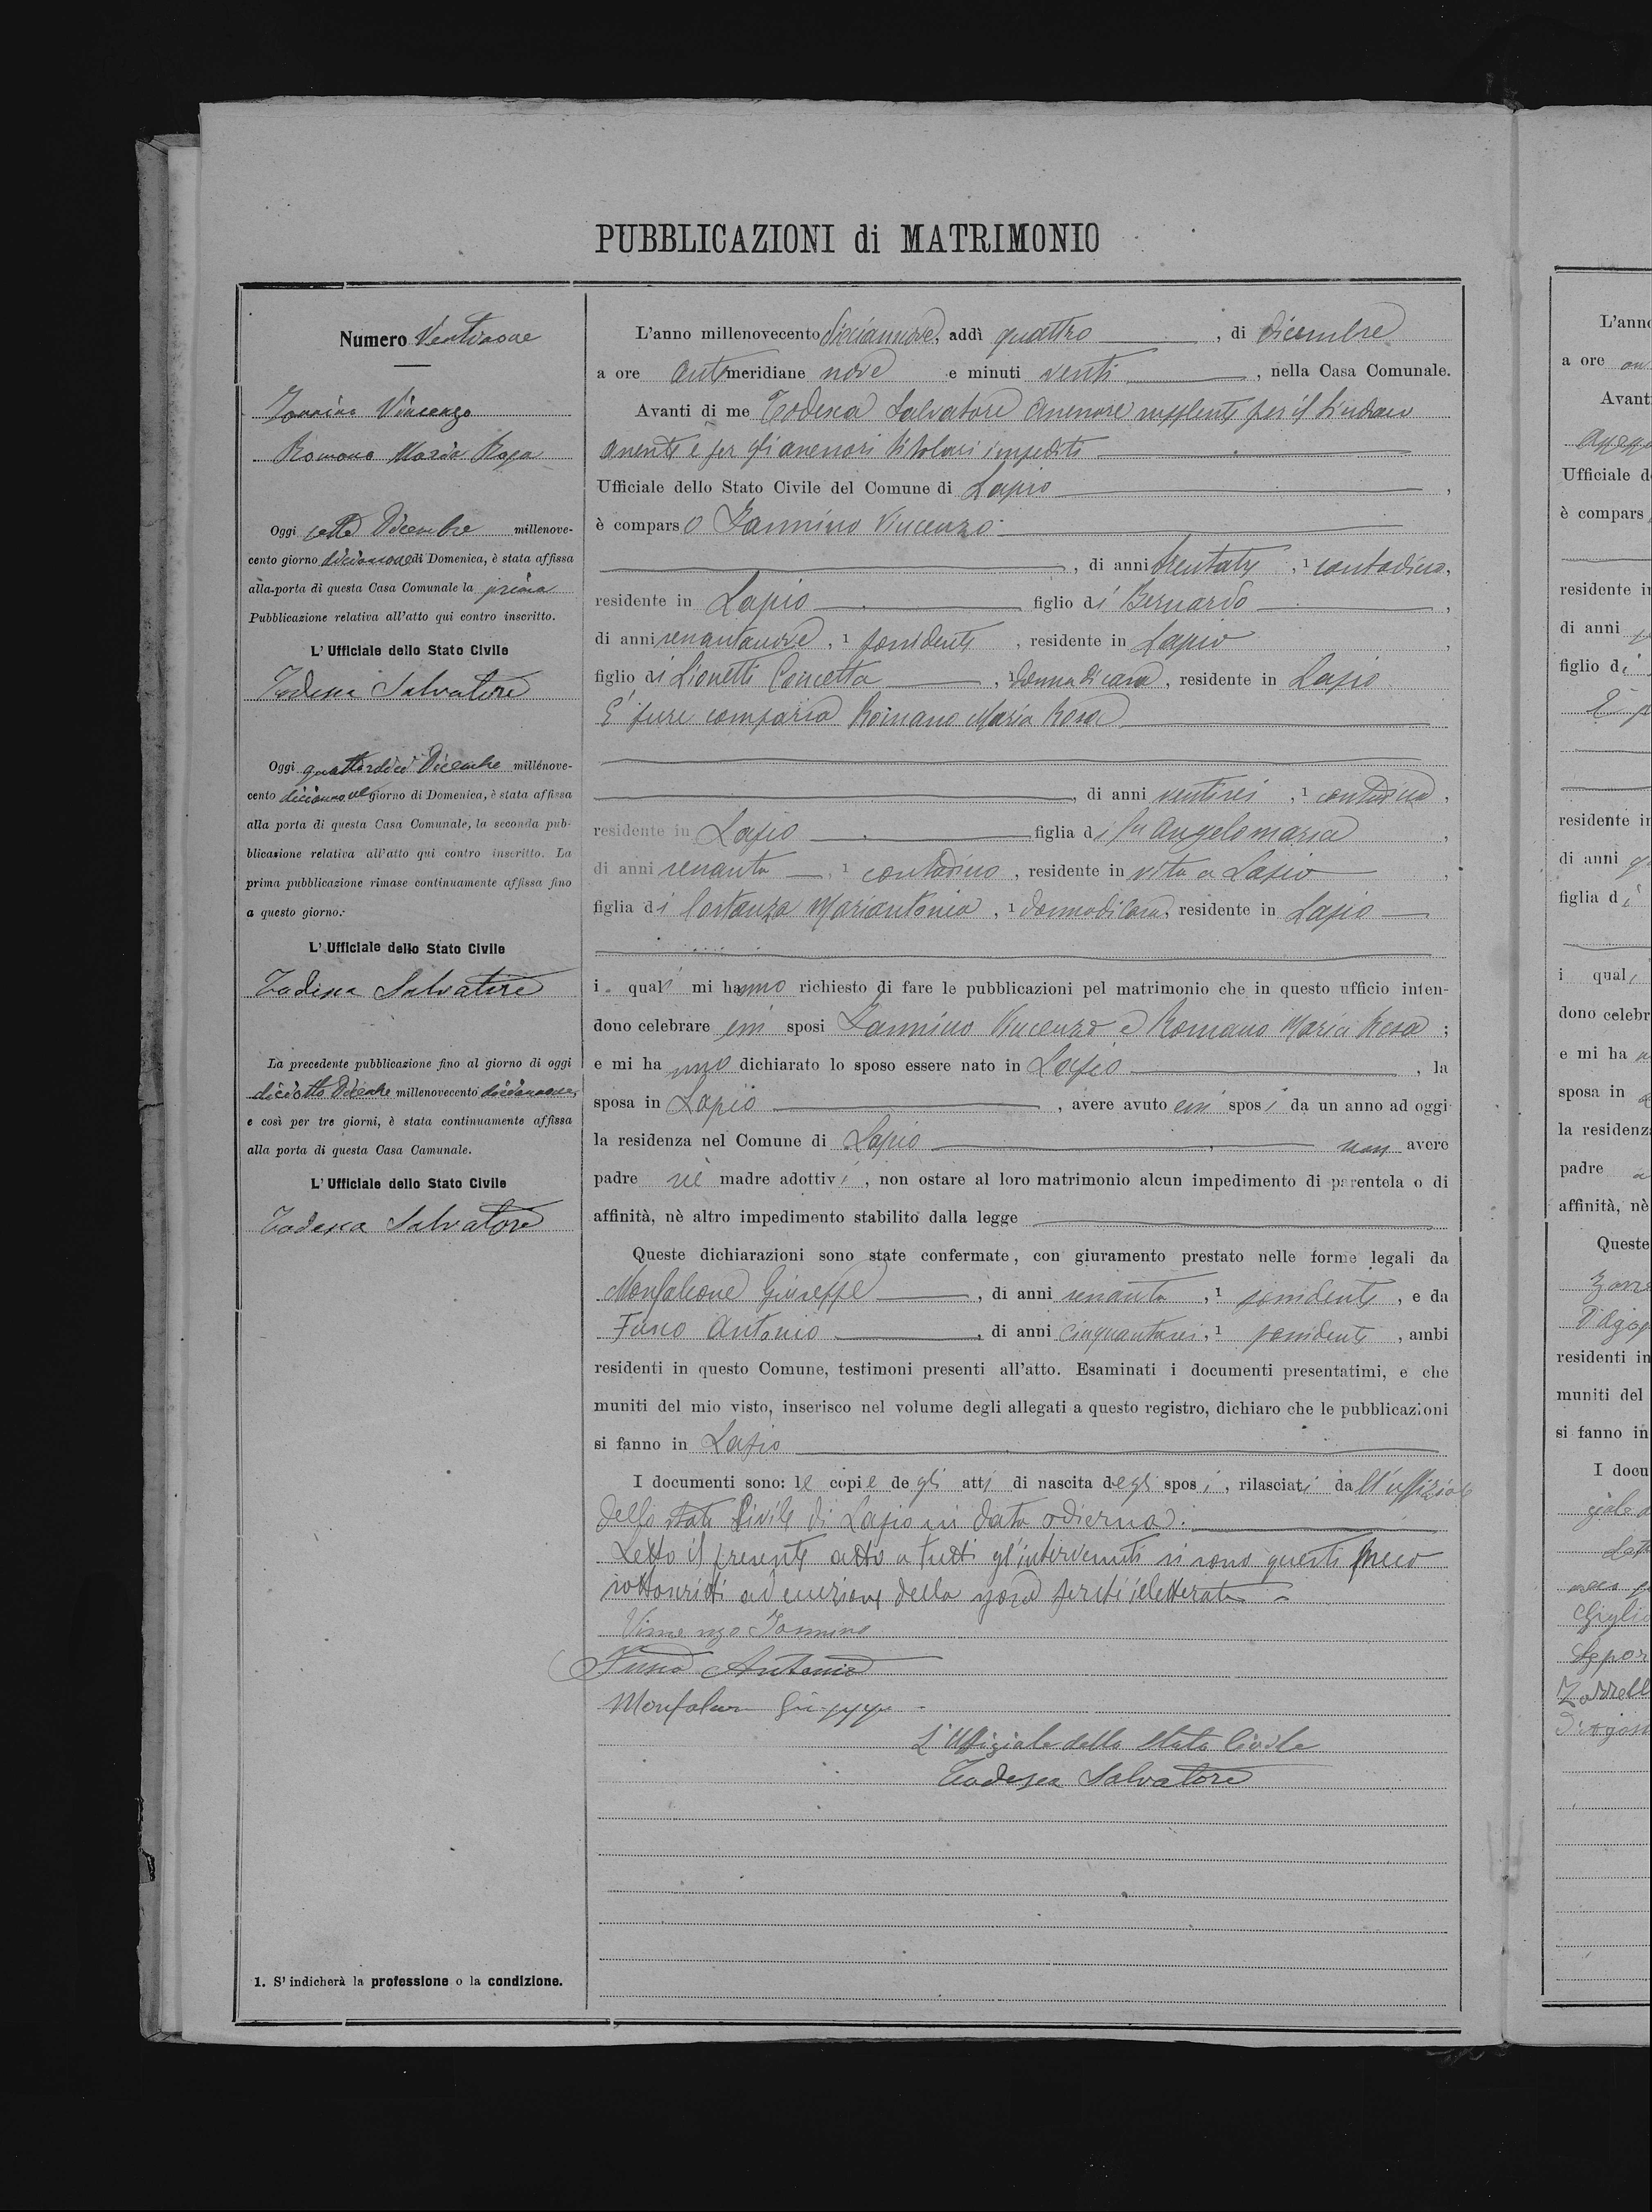 PUBBLICAZIONI di MATRIMONIO
Numero Ventinove
Iannino Vincenzo
Romano Maria Rosa
Oggi sette Dicembre millenove-
cento giorno diciannove di Domenica, è stata affissa
alla porta di questa Casa Comunale la prima
Pubblicazione relativa all'atto qui contro inscritto.
L'Ufficiale dello Stato Civile
Todesca Salvatore
Oggi quattordici Dicembre millenove-
cento diciannove giorno di Domenica, è stata affissa
alla porta di questa Casa Comunale, la seconda pub-
blicazione relativa all'atto qui contro inscritto. La
prima pubblicazione rimase continuamente affissa fino
a questo giorno.
L'Ufficiale dello Stato Civile
Todesca Salvatore
La precedente pubblicazione fino al giorno di oggi
diciotto Dicembre millenovecento diciannove,
e così per tre giorni, è stata continuamente affissa
alla porta di questa Casa Camunale.
L'Ufficiale dello Stato Civile
Todesca Salvatore
1. S'indicherà la professione o la condizione.
L'anno millenovecento diciannove, addì quattro, di dicembre
a ore antimeridiane nove e minuti venti, nella Casa Comunale.
Avanti di me Todesca Salvatore assessore supplente per il Sindaco
assente e per gli assessori titolari impediti
Ufficiale dello Stato Civile del Comune di Lapio,
è comparso Iannino Vincenzo
, di anni trentatre, 1 contadino,
residente in Lapio figlio di Bernardo,
di anni sessantanove, 1 possidente, residente in Lapio,
figlio di Lionetti Concetta, donna di casa, residente in Lapio
E' pure comparsa Romano Maria Rosa
, di anni ventisei, 1 contadina,
residente in Lapio figlia di fu Angelomaria,
di anni sessanta, 1 contadino, residente in vita a Lapio,
figlia di Costanza Mariantonia, 1 donna di casa, residente in Lapio
i quali mi hanno richiesto di fare le pubblicazioni pel matrimonio che in questo ufficio inten-
dono celebrare essi sposi Iannino Vincenzo e Romano Maria Rosa;
e mi hanno dichiarato lo sposo essere nato in Lapio, la
sposa in Lapio, avere avuto essi sposi da un anno ad oggi
la residenza nel Comune di Lapio non avere
padre nè madre adottivi, non ostare al loro matrimonio alcun impedimento di parentela o di
affinità, nè altro impedimento stabilito dalla legge
Queste dichiarazioni sono state confermate, con giuramento prestato nelle forme legali da
Monfalcone Giuseppe, di anni sessanta, 1 possidente, e da
Fusco Antonio, di anni cinquantasei, 1 possidente, ambi
residenti in questo Comune, testimoni presenti all'atto. Esaminati i documenti presentatimi, e che
muniti del mio visto, inserisco nel volume degli allegati a questo registro, dichiaro che le pubblicazioni
si fanno in Lapio
I documenti sono: le copie degli atti di nascita degli sposi, rilasciati dall'uffiziale
dello stato Civile di Lapio in data odierna.
Letto il presente atto a tutti gl'intervenuti si sono questi meco
sottoscritti ad eccezione della sposa perchè illetterata
Vincenzo Iannino
Fusco Antonio
Monfalcon Giuseppe
L'Uffiziale dello Stato Civile
Todesca Salvatore
L'anno
a ore
Avanti
Ufficiale d
è compars
residente in
di anni
figlio di
residente in
di anni
figlia di
i quali
dono celebr
e mi ha
sposa in
la residenz
padre
affinità, nè
Queste
residenti in
muniti del
si fanno in
I docu